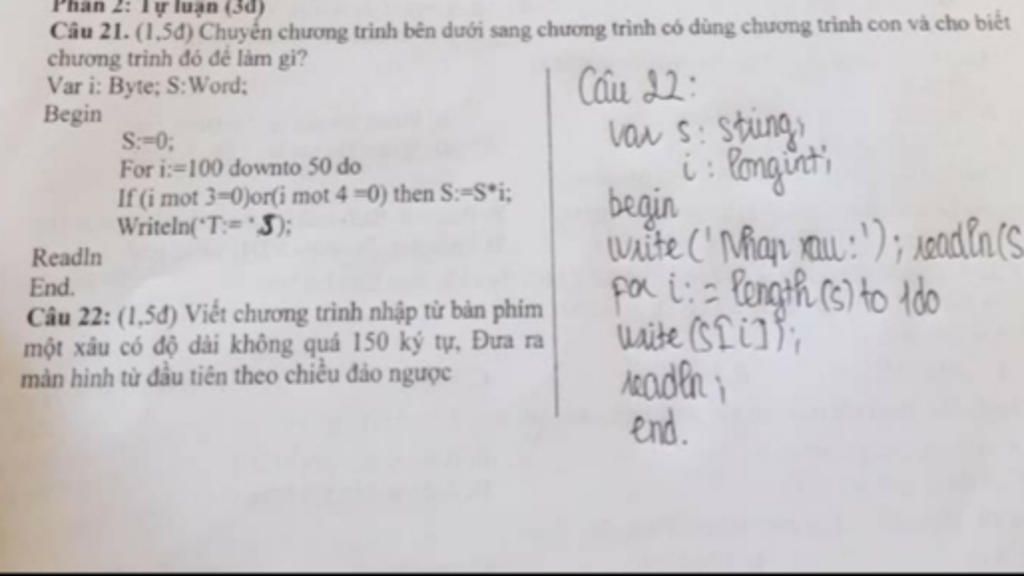 Phần 2: Tự luận (3đ)
Câu 21. (1,5đ) Chuyển chương trình bên dưới sang chương trình có dùng chương trình con và cho biết
chương trình đó để làm gì?
Var i: Byte; S:Word;
Begin
S:=0;
For i:=100 downto 50 do
If (i mot 3=0)or(i mot 4 =0) then S:=S*i;
Writeln('T:= 'S);
Readln
End.
Câu 22: (1,5đ) Viết chương trình nhập từ bàn phím
một xâu có độ dài không quá 150 ký tự, Đưa ra
màn hình từ đầu tiên theo chiều đảo ngược
Câu 22:
var s: string;
i : longint;
begin
write ('Nhap xau:'); readln(S
for i: = length (s) to 1do
write (S[i]);
readln;
end.